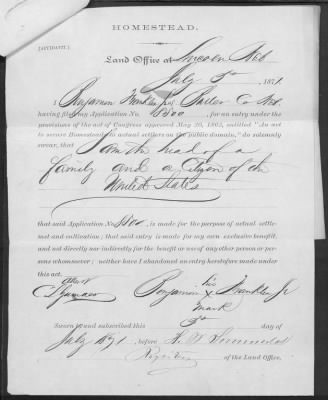 HOMESTEAD.
(AFFIDAVIT.)
Land Office at Lincoln Neb
July 3d 1871.
I Benjamin Franklin Jr of Butler Co Neb.
having filed my Application No. for an entry under the
provisions of the act of Congress approved May 20, 1862, entitled "An act
to secure Homesteads to actual settlers on the public domain," do solemnly
swear, that I am the head of a
family and a Citizen of the
United States
that said Application No. is made for the purpose of actual settle-
ment and cultivation; that said entry is made for my own exclusive benefit,
and not directly nor indirectly for the benefit or use of any other person or per-
sons whomsoever; neither have I abandoned an entry heretofore made under
this act.
attest
his
Benjamin x Franklin Jr
mark
Sworn to and subscribed this 3d day of
July 1871, before
Register of the Land Office.